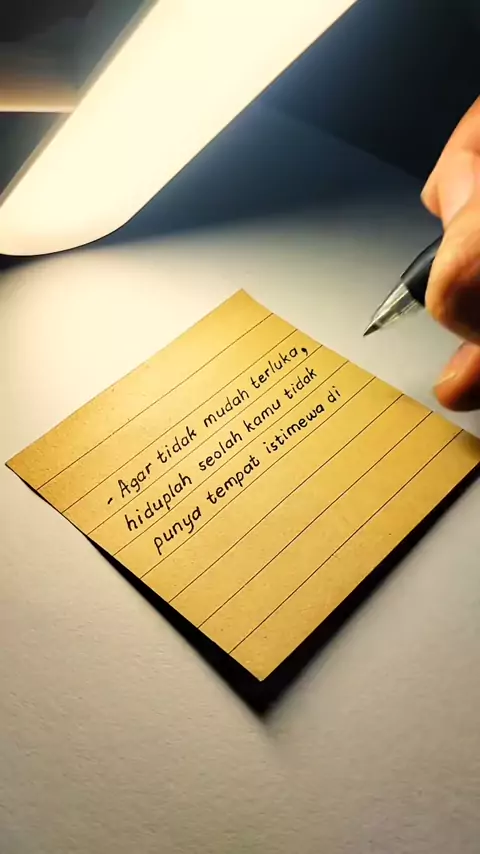 - Agar tidak mudah terluka,
hiduplah seolah kamu tidak
punya tempat istimewa di